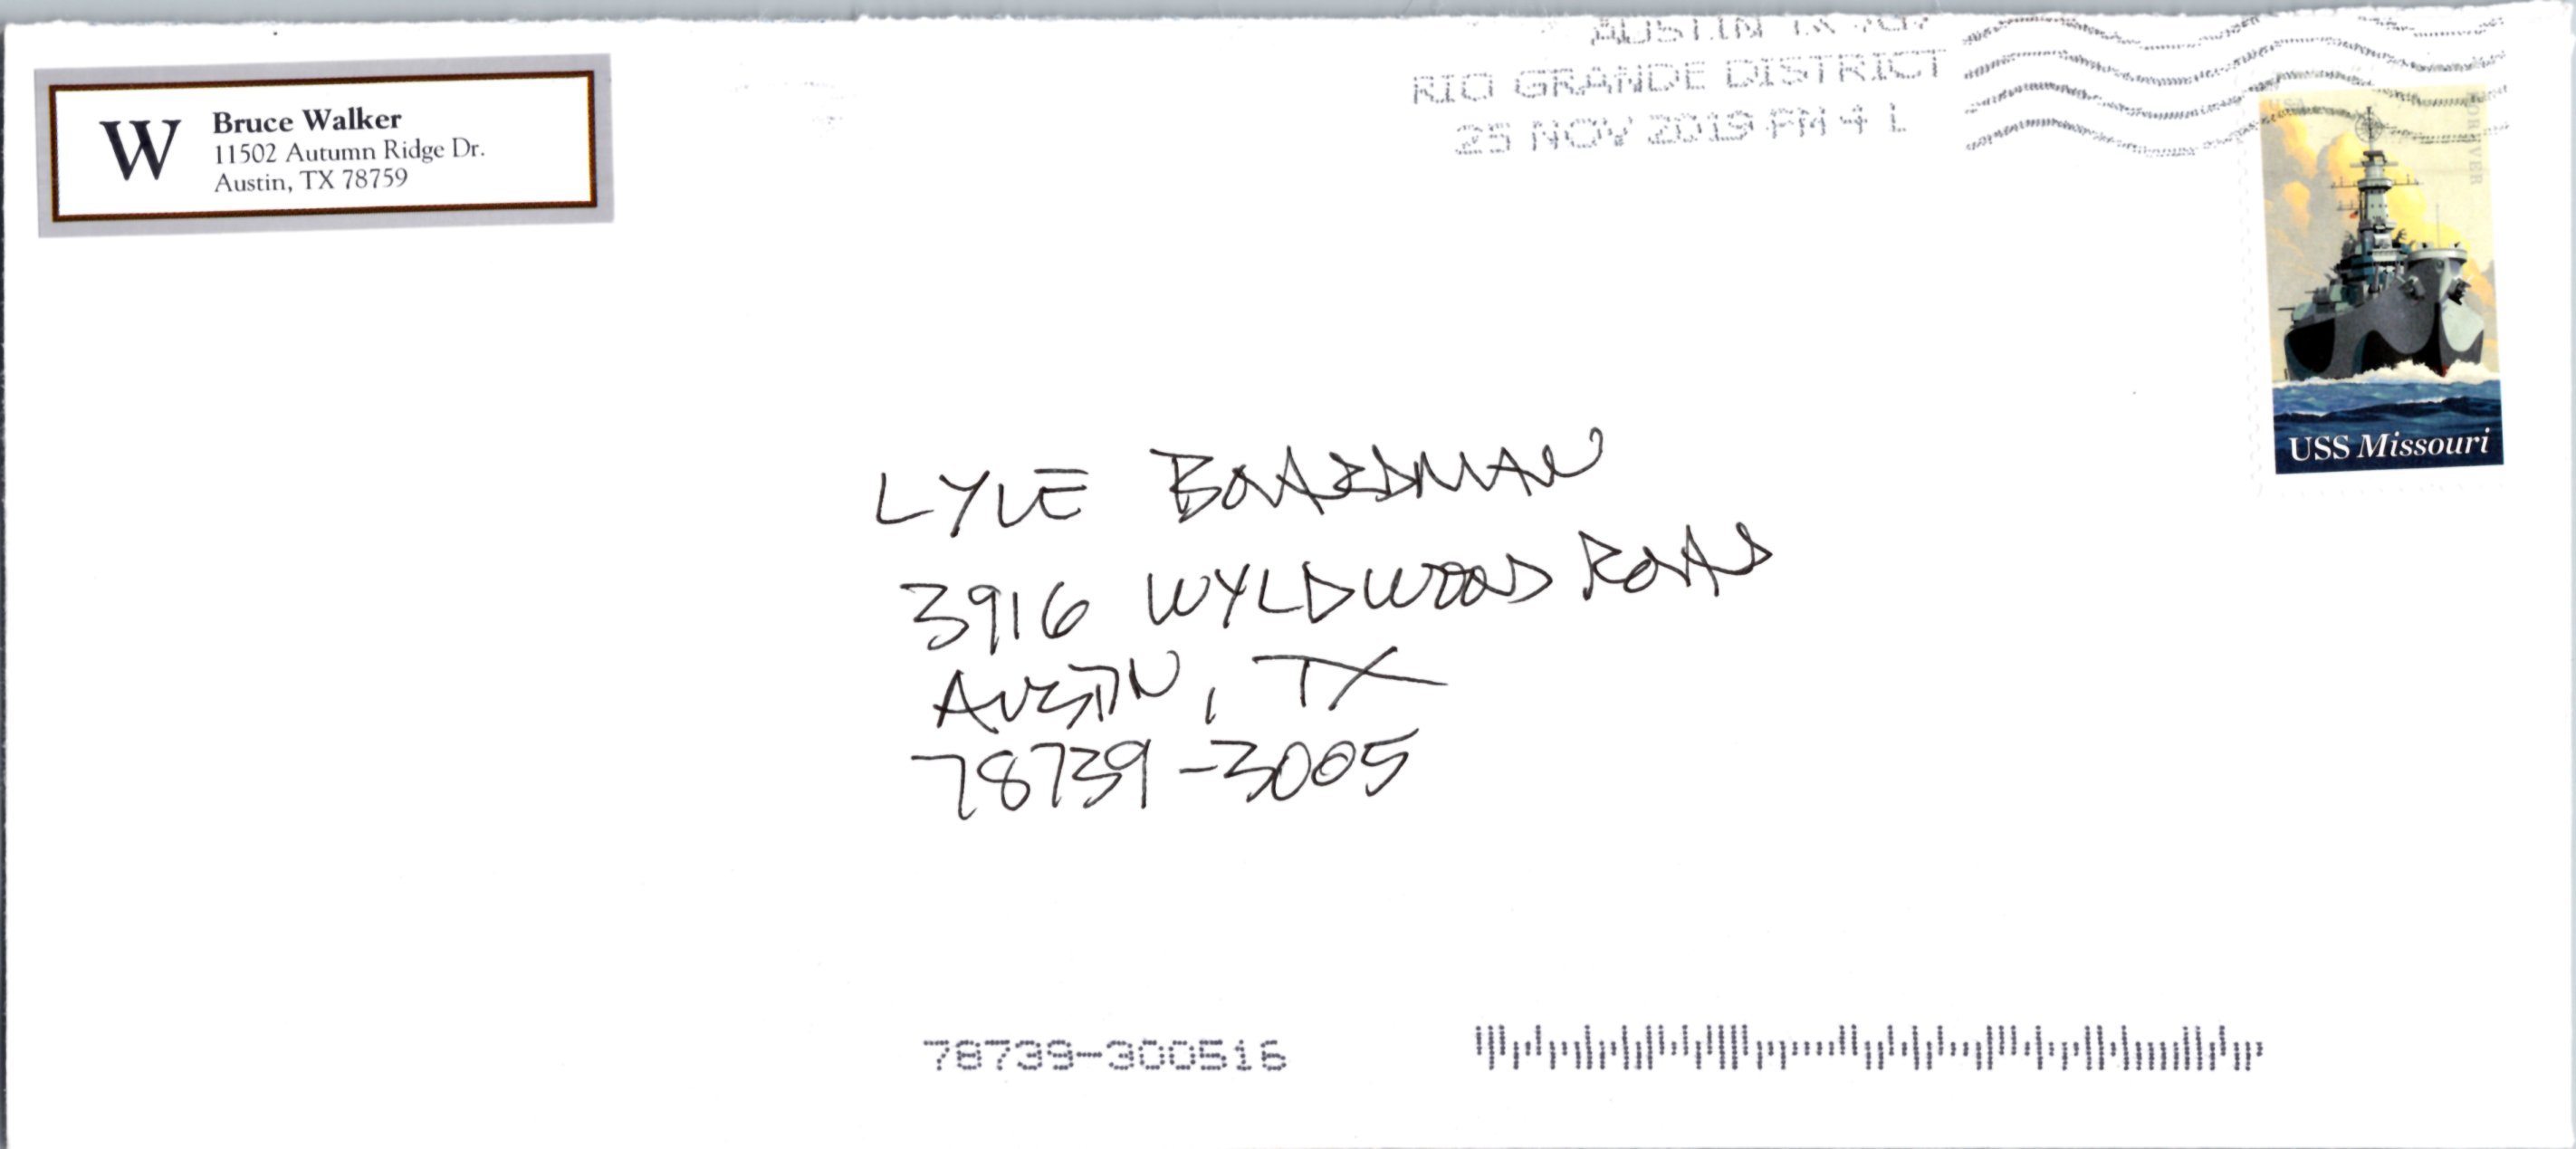 W
Bruce Walker
11502 Autumn Ridge Dr.
Austin, TX 78759
AUSTIN TX
RIO GRANDE DISTRICT
25 NOV 2019 PM 4 L
USA
FOREVER
USS Missouri
LYLE BOARDMAN
3916 WYLDWOOD ROAD
AUSTIN, TX
78739-3005
78739-300516